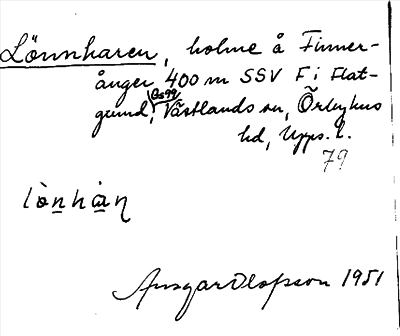 Lönnharen, holme å Finner-
ånger 400 m SSV F i Flat-
grund, Gs 99 Västlands sn, Örbyhus
hd, Upps. l.
79
lònhàn
Ansgar Olofsson 1951